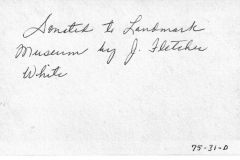 Donated to Landmark
Museum by J. Fletcher
White
75-31-D